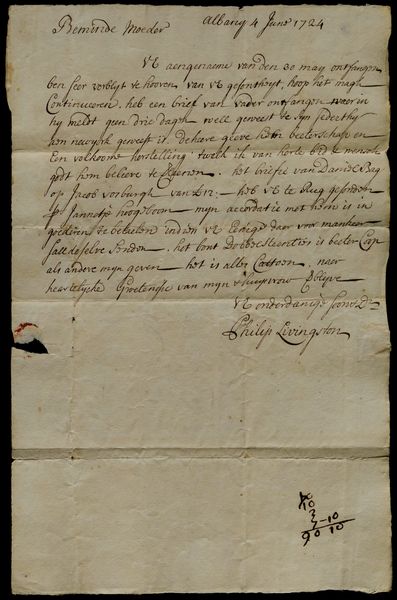 Beminde Moeder Albany 4 Juny 1724
VE aengename van den 30 may ontfangen
ben seer verblyt te hooren van VE gesontheyt, hoop het magh
Continueren. heb een brief van vader ontfangen waer in
hy meldt geen drie dagh well geweest te syn sedert hy
aen newyork geweest is. de heere geeve hem beeterschap en
En volkoome herstelling twelk ik van herte bid &
godt hem believe te . het briefie van David
op Jacob vorburgh van £12:— heb VE te Rug gesonden
pr Jannetie hoogeboom — myn accordat is met hem is in
te betaelen indien VE Eenige daer van mankeer
sall deselve senden. het bont is beeter Coop
als andere myn geven — het is alles Cattoen. naer
hertelycke Groetenisse van myn & huysvrow Blyve
VE onderdanige soone Dr
Philip Livingston
10
3
7–10
90 10